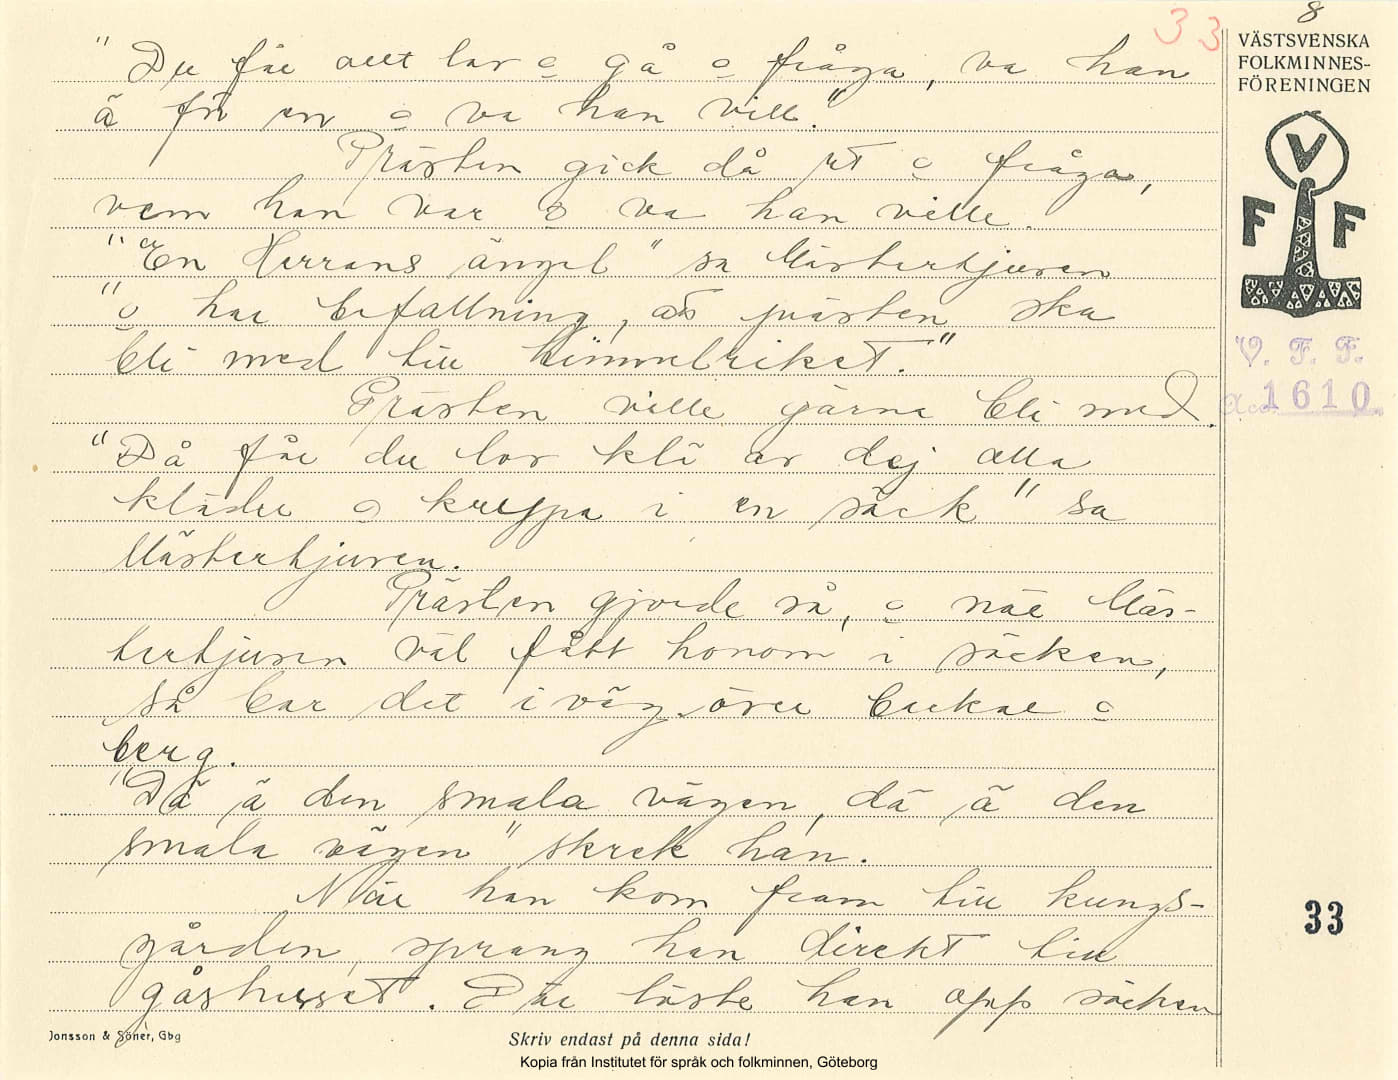 33
8
"Du får allt lov o gå o fråga, va han
ä för en o va han vill."
Prästen gick då ut o fråga,
vem han var o va han ville.
"En Herrans ängel" sa Mästertjuven
"o har befallning, att prästen ska
bli med till himmelriket."
Prästen ville gärna bli med.
"Då får du lov klä av dej alla
kläder o kryppa i en säck" sa
Mästertjuven.
Prästen gjorde så, o när Mäs-
tertjuven väl fått honom i säcken,
så bar det iväg över backar o
berg.
"Dä ä den smala vägen, dä ä den
smala vägen" skrek han.
När han kom fram till kungs-
gården, sprang han direkt till
gåshuset. Där löste han opp säcken
VÄSTSVENSKA
FOLKMINNES-
FÖRENINGEN
V
F F
V. F. F.
Acc. 1610
33
Jonsson & Söner, Gbg
Skriv endast på denna sida!
Kopia från Institutet för språk och folkminnen, Göteborg